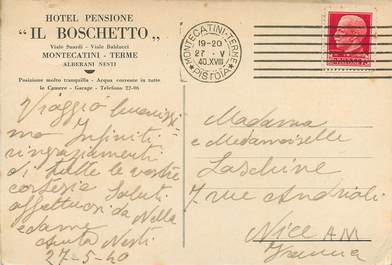 HOTEL PENSIONE
"IL BOSCHETTO"
Viale Suardi - Viale Balducci
MONTECATINI - TERME
ALBERANI NESTI
Posizione molto tranquilla - Acqua corrente in tutte
le Camere - Garage - Telefono 22-06
MONTECATINI-TERME
19-20
27 · V
40.XVIII
PISTOIA
Viaggio buonissi
mo Infiniti
ringraziamenti
di tutte le vostre
cortesie Saluti
affettuosi da Nella
Nesti
27-5-40
Madame
e Medamoiselle
Laschine
7 rue Andrioli
Nice A M
Francia